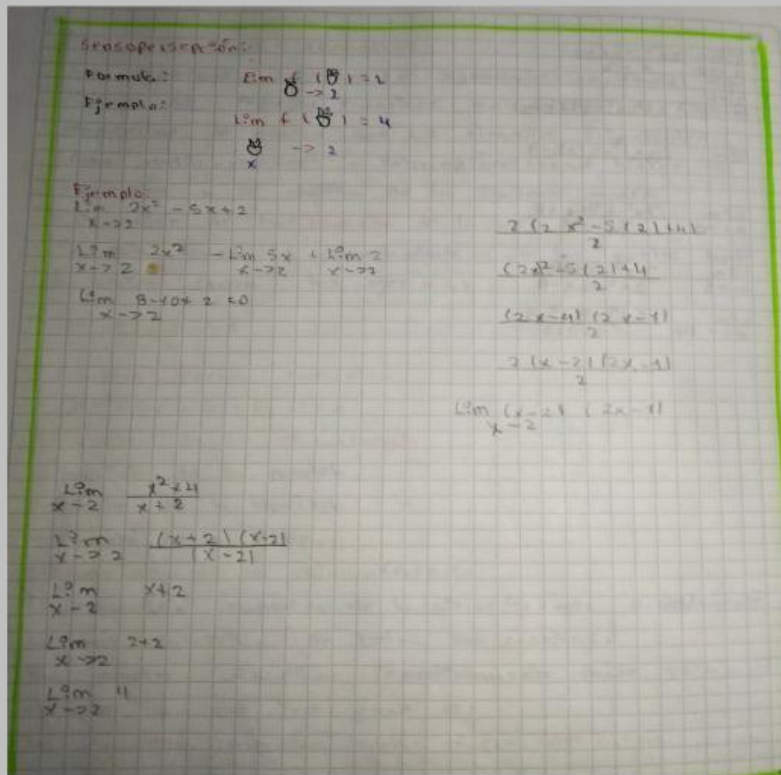 Sensopersepción:
Formula: Lim f ( ) = L
-> 2
Ejemplo:
Lim f ( ) = 4
-> 2
x
Ejemplo:
Lim 2x² - 5x + 2
x->2
Lim 2x² - Lim 5x + Lim 2
x->2 x->2 x->2
Lim 8-10+2=0
x->2
2(2x²-5(2)+4)
2
(2x)²-5(2)+4
2
(2x-4)(2x-1)
2
2(x-2)(2x-1)
2
Lim (x-2) (2x-1)
x-2
Lim x²+4
x-2 x+2
Lim (x+2)(x-2)
x->2 (x-2)
Lim x+2
x-2
Lim 2+2
x->2
Lim 4
x->2